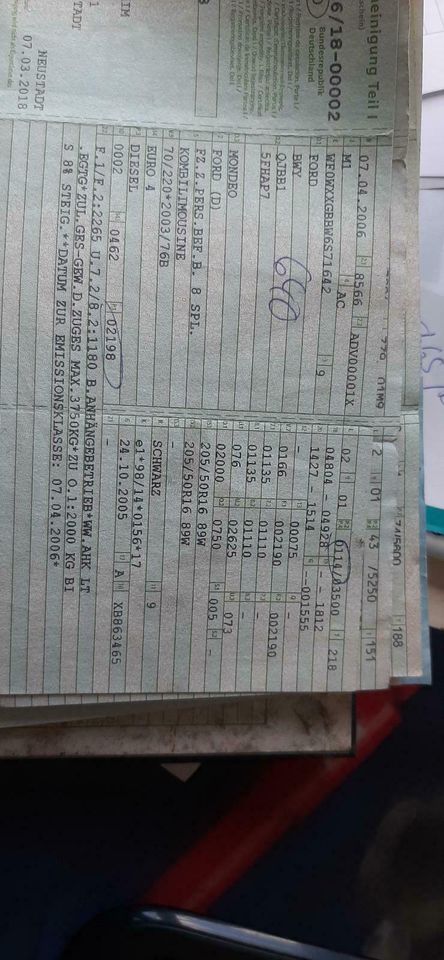 einigung Teil I
6/18-00002
Bundesrepublik
Deutschland
IM
STADT
NEUSTADT
07.03.2018
07.04.2006 8566 ADV00001X
M1 AC
WF0WXXGBBW6S71642 9
FORD
BWY
QJBB1
5FHAP7
640
MONDEO
FORD (D)
FZ.Z.PERS.BEF.B. 8 SPL.
KOMBILIMOUSINE
70/220*2003/76B
EURO 4
DIESEL
0002 0462 02198
188
2 01 43 /5250 151
02 01 0114/03500 218
04804 - 04928 - - 1812
1427 - 1514 ---001555
- 00075 -
0166 002190 002190
01135 01110 -
01135 01110 -
076 02625 073
02000 0750 005 -
205/50R16 89W
205/50R16 89W
-
SCHWARZ 9
e1*98/14*0156*17
24.10.2005 A XB863465
-
F.1/F.2:2265 U.7.2/8.2:1180 B.ANHÄNGEBETRIEB*WW.AHK LT
.EGTG*ZUL.GES-GEW.D.ZUGES MAX.3750KG*ZU O.1:2000 KG BI
S 8% STEIG.**DATUM ZUR EMISSIONSKLASSE: 07.04.2006*